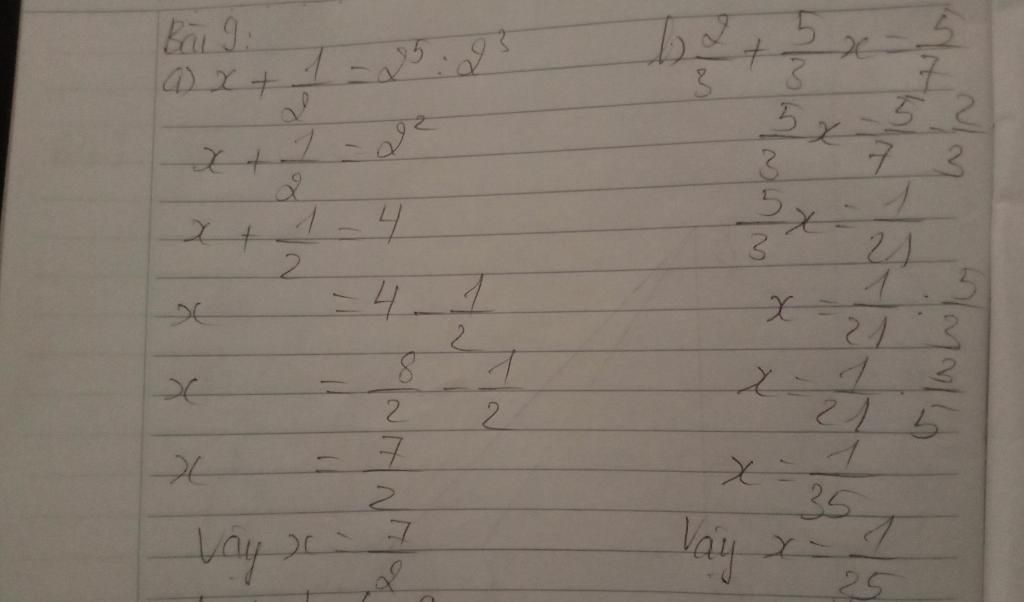 Bài 9:
a) x + 1/2 = 2⁵ : 2³
x + 1/2 = 2²
x + 1/2 = 4
x = 4 - 1/2
x = 8/2 - 1/2
x = 7/2
Vậy x = 7/2
b) 2/3 + 5/3 x = 5/7
5/3 x = 5/7 - 2/3
5/3 x = 1/21
x = 1/21 : 5/3
x = 1/21 . 3/5
x = 1/35
Vậy x = 1/25